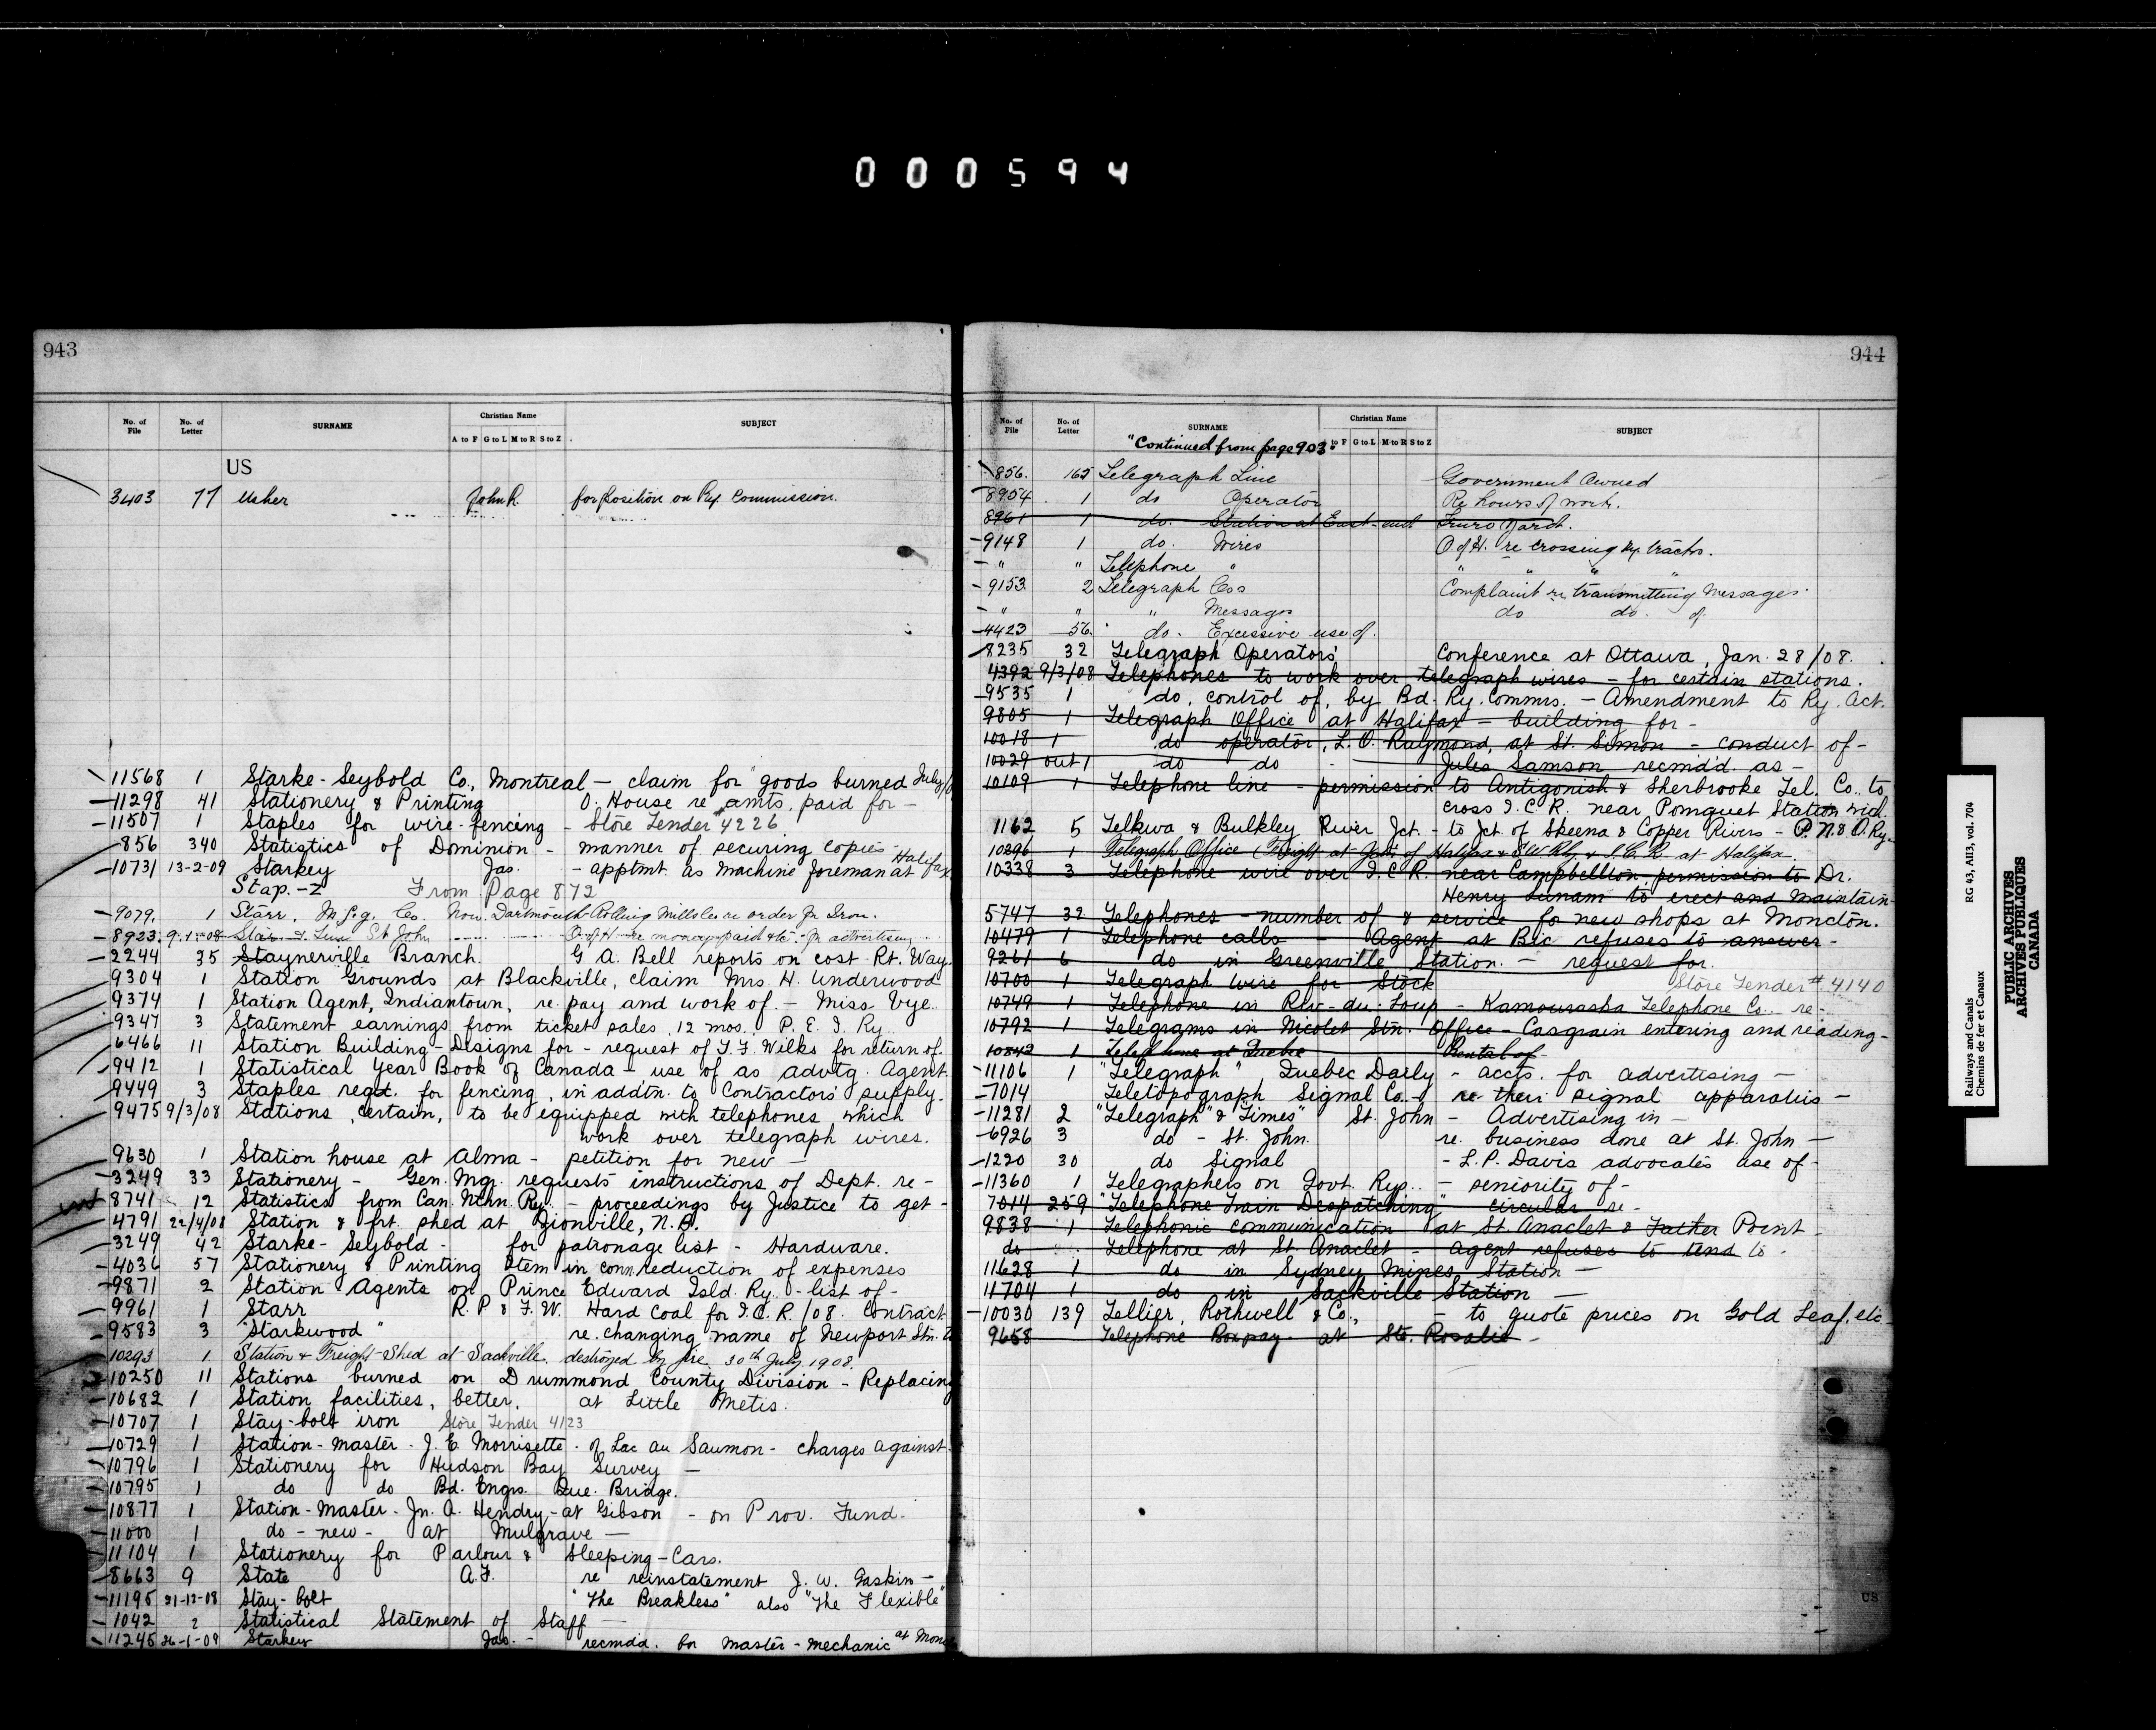 000594
943
No. of File No. of Letter SURNAME Christian Name A to F G to L M to R S to Z SUBJECT
US
3403 77 Usher John R. for position on Ry. Commission.
11568 1 Starke-Seybold Co., Montreal — claim for goods burned July/0
11298 41 Stationery & Printing O. House re amts. paid for —
11507 1 Staples for wire-fencing - Store Tender #4226
856 340 Statistics of Dominion - manner of securing copies -
10731 13-2-09 Starkey Jas. - apptmt. as machine foreman at Halifax
Stap.-z From Page 872
9079. 1 Starr, Mfg. Co. Now Dartmouth Rolling Mills Co re order for Iron.
8923. 9-1-08 Star & Sun St John O of H re moneys paid to - for advertising
2244 35 Staynerville Branch. G A. Bell reports on cost Rt. Way.
9304 1 Station Grounds at Blackville, claim Mrs. H. Underwood
9374 1 Station Agent, Indiantown, re. pay and work of. - Miss Vye.
9347 3 Statement earnings from ticket sales, 12 mos., P. E. I. Ry.
6466 11 Station Building - Designs for - request of T. F. Wilks for return of.
9412 1 Statistical Year Book of Canada - use of as advtg. Agent
9449 3 Staples reqd. for fencing, in addtn. to Contractors' supply.
9475 9/3/08 Stations, certain, to be equipped with telephones which
work over telegraph wires.
9630 1 Station house at Alma - petition for new —
3249 33 Stationery - Gen. Mgr. requests instructions of Dept. re -
8741 12 Statistics from Can. Nthn. Ry. - proceedings by Justice to get -
4791 22/4/08 Station & frt. shed at Zionville, N.B.
3249 42 Starke-Seybold - for patronage list - Hardware.
4036 57 Stationery & Printing Item in conn. reduction of expenses
9871 2 Station Agents on Prince Edward Isld. Ry. - list of -
9961 1 Starr R. P & F. W. Hard Coal for I.C.R. /08. Contract
9583 3 "Starkwood" re. changing name of Newport Stn. to
10293 1 Station & Freight Shed at Sackville, destroyed by fire 30th July 1908.
10250 11 Stations burned on Drummond County Division - Replacing
10682 1 Station facilities, better, at Little Metis.
10707 1 Stay-bolt iron Store Tender 4123
10729 1 Station-master - J. E. Morrisette - of Lac au Saumon - charges against
10796 1 Stationery for Hudson Bay Survey —
10795 1 do do Bd. Engrs. Que. Bridge.
10877 1 Station-Master - Jn. A. Hendry - at Gibson - on Prov. Fund.
11000 1 do - new - at Mulgrave —
11104 1 Stationery for Parlour & Sleeping-Cars.
8663 9 State A.F. re reinstatement J. W. Gaskin —
11195 21-12-08 Stay-bolt "The Breakless" also "The Flexible"
1042 2 Statistical Statement of Staff —
11245 26-1-09 Starkey Jas. - recmd'd. for master-mechanic at Monc
944
No. of File No. of Letter SURNAME Christian Name to F G to L M to R S to Z SUBJECT
"Continued from page 903"
856. 165 Telegraph Line Government Owned
8954 1 do Operator Re hours of work.
8961 1 do. Station at East-end Truro Yard.
9148 1 do. Wires O of H. re crossing Ry tracks.
" " Telephone " " " "
9153. 2 Telegraph Cos Complaint re transmitting Messages.
" " " Messages do do. of.
4423 56. do. Excessive use of.
8235 32 Telegraph Operators' Conference at Ottawa, Jan. 28/08.
4392 9/3/08 Telephones to work over telegraph wires - for certain stations.
9535 1 do, control of, by Bd. Ry. Commrs. - Amendment to Ry. Act.
9805 1 Telegraph Office at Halifax - building for -
10018 1 do operator, L. O. Raymond, at St. Simon - conduct of -
10029 out 1 do do - Jules Samson recmd'd. as -
10109 1 Telephone line - permission to Antigonish & Sherbrooke Tel. Co. to
cross I. C. R. near Pomquet Station
1162 5 Telkwa & Bulkley River Jct. - to Jct. of Skeena & Copper Rivers - P. N. & O. Ry.
10296 1 Telegraph Office (Freight at of Halifax & S.W. Ry. & I.C.R. at Halifax.
10338 3 Telephone wire over I C R. near Campbellton - permission to Dr.
Henry Lunam to erect and maintain
5747 32 Telephones - number of & service for new shops at Moncton.
10479 1 Telephone calls - Agent at Bic refuses to answer -
9261 6 do in Greenville Station. - request for.
10700 1 Telegraph wire for Stock Store Tender # 4140
10749 1 Telephone in Riv-du-Loup - Kamouraska Telephone Co. re -
10792 1 Telegrams in Nicolet Stn. Office - Casgrain entering and reading -
10842 1 Telephone at Quebec Rental of
11106 1 "Telegraph", Quebec Daily - accts. for advertising —
7014 Teletopograph Signal Co. - re their signal apparatus —
11281 2 "Telegraph" & "Times" St. John - Advertising in —
6926 3 do - St. John. re. business done at St. John —
1220 30 do Signal - L. P. Davis advocates use of -
11360 1 Telegraphers on Govt. Rys. - seniority of -
7014 259 "Telephone Train Despatching" circular re -
9838 1 Telephonic communication at St. Anaclet & Father Point -
do Telephone at St. Anaclet - agent refuses to tend to -
11628 1 do in Sydney Mines Station —
11704 1 do in Sackville Station —
10030 139 Tellier, Rothwell & Co., - to quote prices on Gold Leaf, etc.
9658 Telephone Box pay at Ste. Rosalie
US
Railways and Canals RG 43, AII3, vol. 704
Chemins de fer et Canaux
PUBLIC ARCHIVES
ARCHIVES PUBLIQUES
CANADA